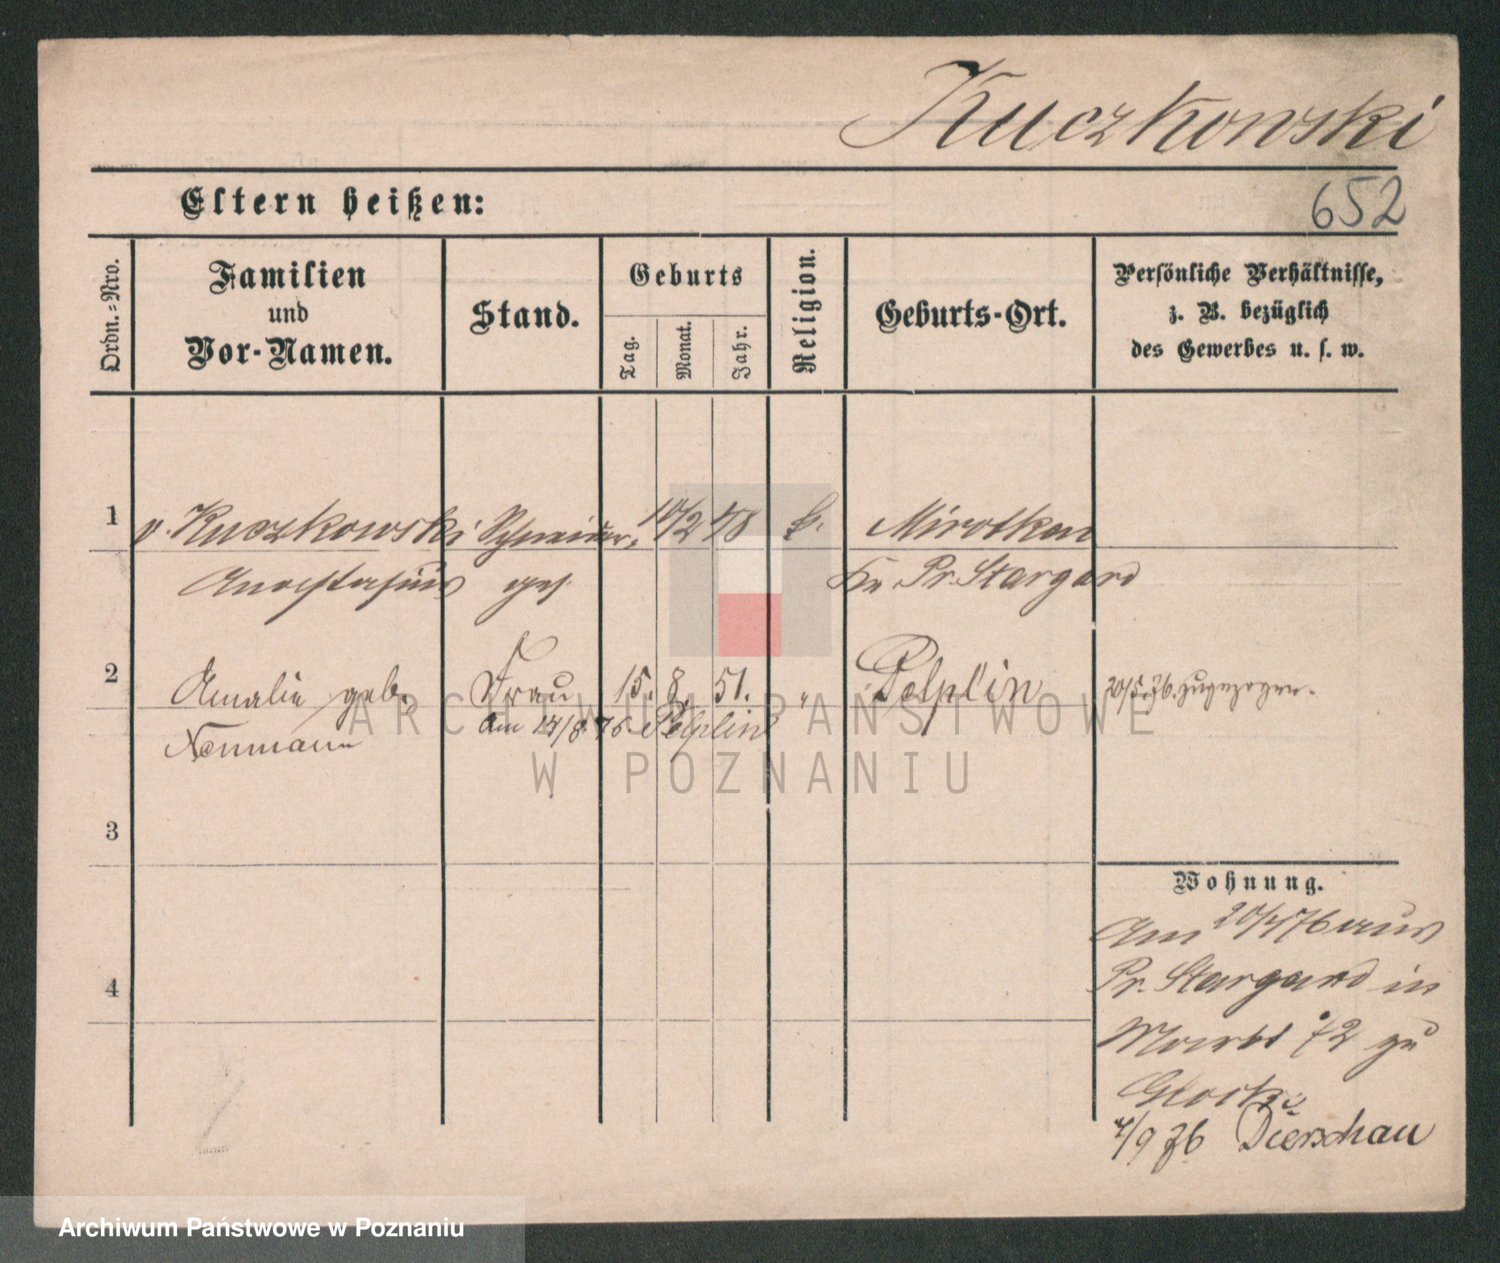 Kuczkowski
Eltern heißen:
652
Ordn.-Nro.
Familien
und
Vor-Namen.
Stand.
Geburts
Tag.
Monat.
Jahr.
Religion.
Geburts-Ort.
Persönliche Verhältnisse,
z. B. bezüglich
des Gewerbes u. s. w.
1
v. Kuczkowski Schneider- 48 k. Mirotken
Anastasius ges. Kr. Pr. Stargard
2
Amalie geb. Frau 15. 8. 51. " Pelplin 20/5. 76. zugezogen.
Neumann Am 14/8 76 Pelplin
ARCHIWUM PAŃSTWOWE
W POZNANIU
3
Wohnung.
Am 20/4 76 aus
Pr. Stargard in
Markt 72 zu
Glocke
4
7/9 76 Dierschau
Archiwum Państwowe w Poznaniu